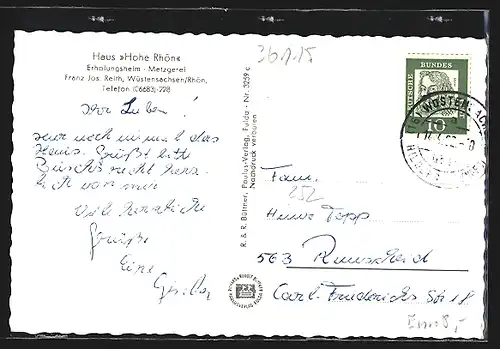 Haus »Hohe Rhön«
Erholungsheim - Metzgerei
Franz Jos. Reith, Wüstensachsen/Rhön,
Telefon (06683) 228
Ihr Lieben!
nur noch einmal das
Haus. Grüßt bitte
recht herz-
lich von mir
Viele herzliche
Grüße
Eure
R. & R. Büttner, Paulus-Verlag, Fulda - Nr. 3259 c
Nachdruck verboten
361.15
DEUTSCHE BUNDES
10
WÜSTEN
Fam.
252
Hans Topp
563 Remscheid
Carl Friedrichs Str 18